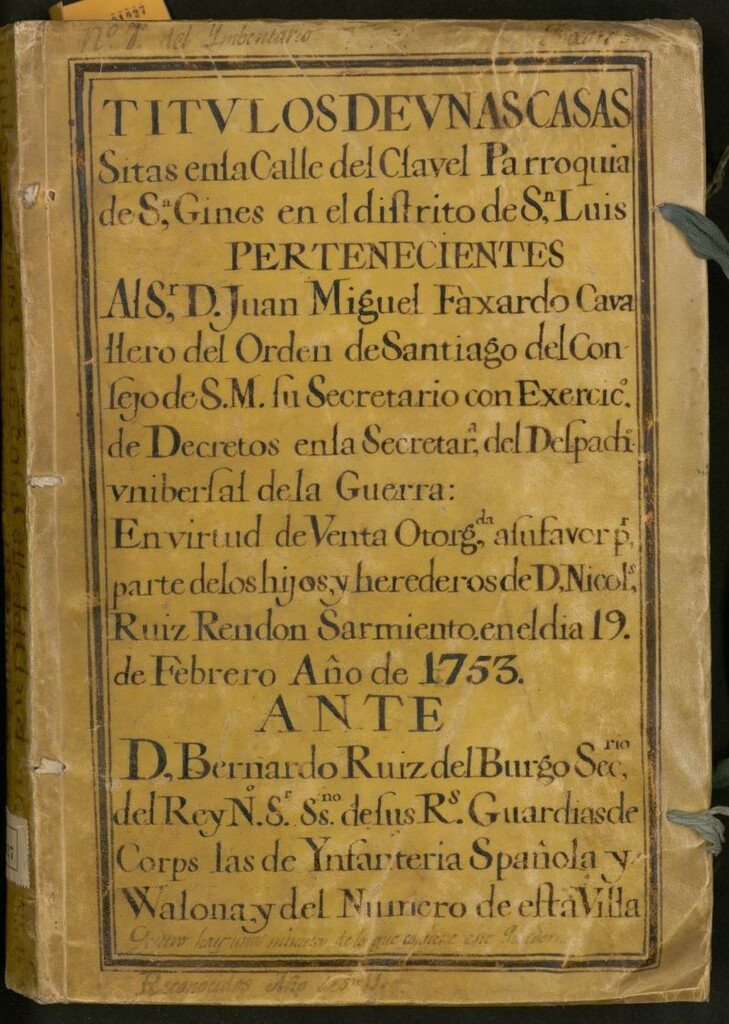 01827
Nº 7º del Ymbentario
TITVLOS DE VNAS CASAS
Sitas enla Calle del Clavel Parroquia
de S.ⁿ Gines en el distrito de S.ⁿ Luis
PERTENECIENTES
Al S.ʳ D. Juan Miguel Faxardo Cava
llero del Orden de Santiago del Con-
sejo de S.M. su Secretario con Exercic.º
de Decretos enla Secretar.ᵃ del Despach
vnibersal dela Guerra:
En virtud de Venta Otorg.ᵈᵃ a su favor p.ʳ
parte delos hijos, y herederos de D. Nicol.ˢ
Ruiz Rendon Sarmiento, en el dia 19.
de Febrero Año de 1753.
ANTE
D. Bernardo Ruiz del Burgo Sec.ʳⁱᵒ
del Rey N.º S.ʳ Ss.ⁿᵒ de sus R.ˢ Guardias de
Corps las de Ynfanteria Spañola y
Walona, y del Numero de esta Villa
Dentro hay una minuta de lo que contiene
Reconocidos Año